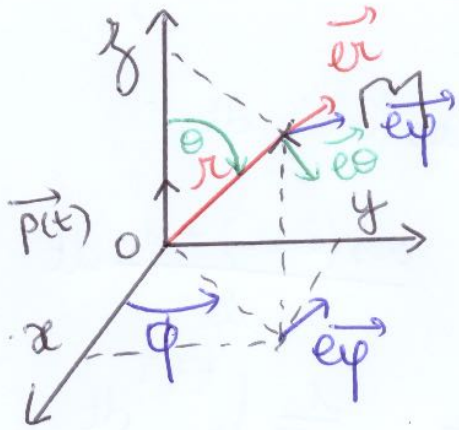 z
→er
M
→eφ
θ
r
→eθ
→p(t)
O
y
x
φ
→eφ